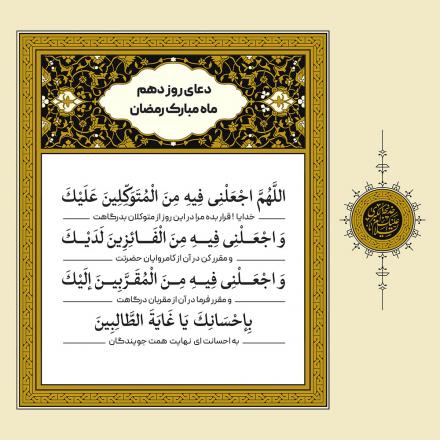 دعای روز دهم
ماه مبارک رمضان
اللَّهُمَّ اجْعَلْنِی فِیهِ مِنَ الْمُتَوَکِّلِینَ عَلَیْكَ
خدایا ! قرار بده مرا در این روز از متوکلان بدرگاهت
وَ اجْعَلْنِی فِیهِ مِنَ الْفَائِزِینَ لَدَیْكَ
و مقرر کن در آن از کامروایان حضرتت
وَ اجْعَلْنِی فِیهِ مِنَ الْمُقَرَّبِینَ إِلَیْكَ
و مقرر فرما در آن از مقربان درگاهت
بِإِحْسَانِكَ یَا غَایَةَ الطَّالِبِینَ
به احسانت ای نهایت همت جویندگان